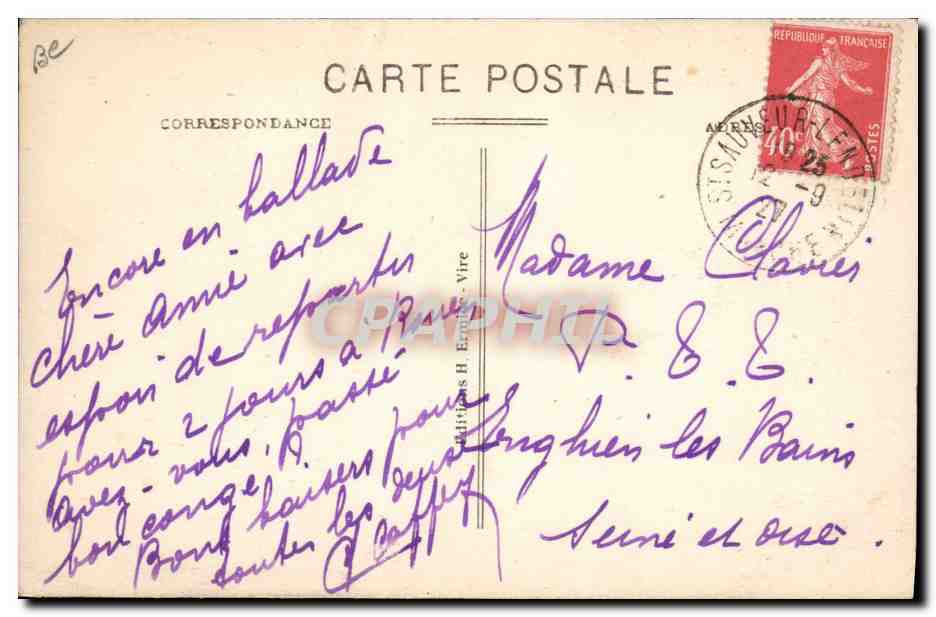 BC
CARTE POSTALE
CORRESPONDANCE
ADRES
RÉPUBLIQUE FRANÇAISE
40c
POSTES
ST SAUVEUR-LENDELIN
19 25
12 -9
27
MANCHE
Encore en ballade
chère Annie avec
espoir de repartir
pour 2 jours à Rouen
avez-vous, passé
bon congé ?
Bons baisers pour
toutes les deux
Madame Clavier
P. T. T.
Enghien les Bains
Seine et Oise.
Editions H. Ermice - Vire
CPAPHIL